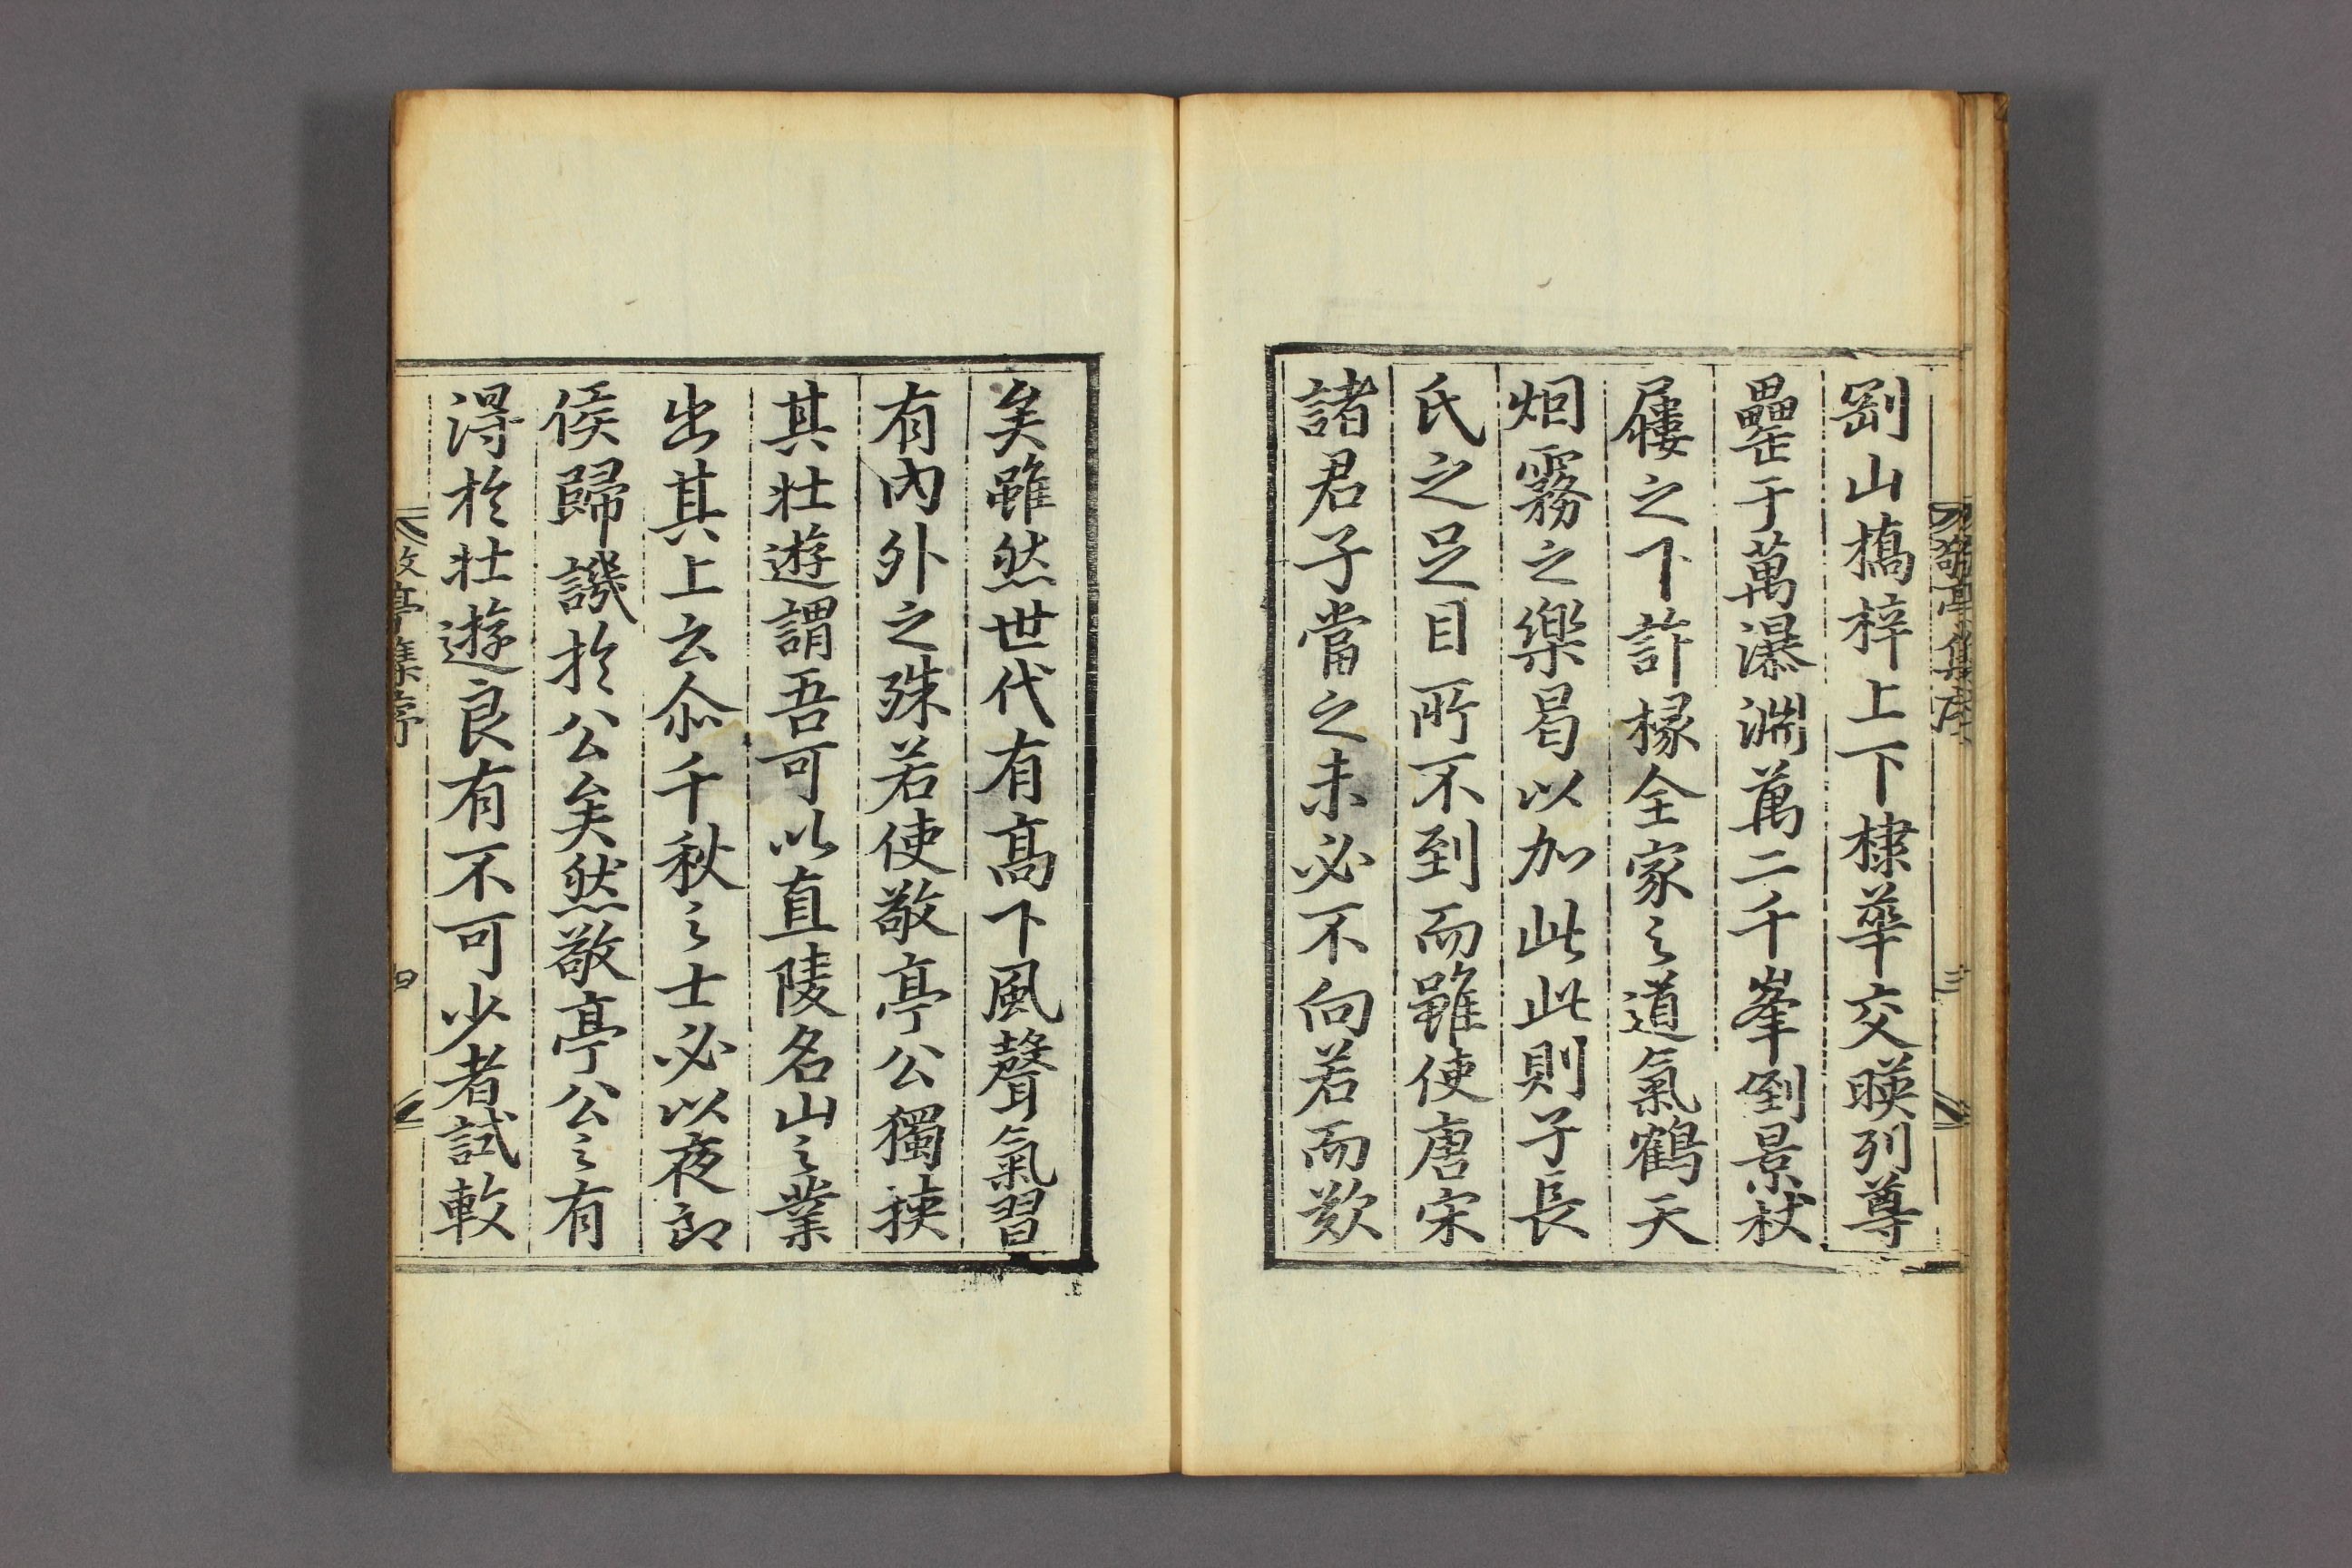 敬亭集序
三
罡山橋梓上下棣華交暎列尊
罍于萬瀑淵萬二千峯倒景杖
屨之下許椽全家之道氣鶴天
烟霧之樂曷以加此此則子長
氏之足目所不到而雖使唐宋
諸君子當之未必不向若而歎
矣雖然世代有高下風聲氣習
有內外之殊若使敬亭公獨挾
其壯遊謂吾可以直陵名山之業
出其上云尒千秋之士必以夜郎
侯歸譏於公矣然敬亭公之有
得於壯遊良有不可少者試較
敬亭集序
四